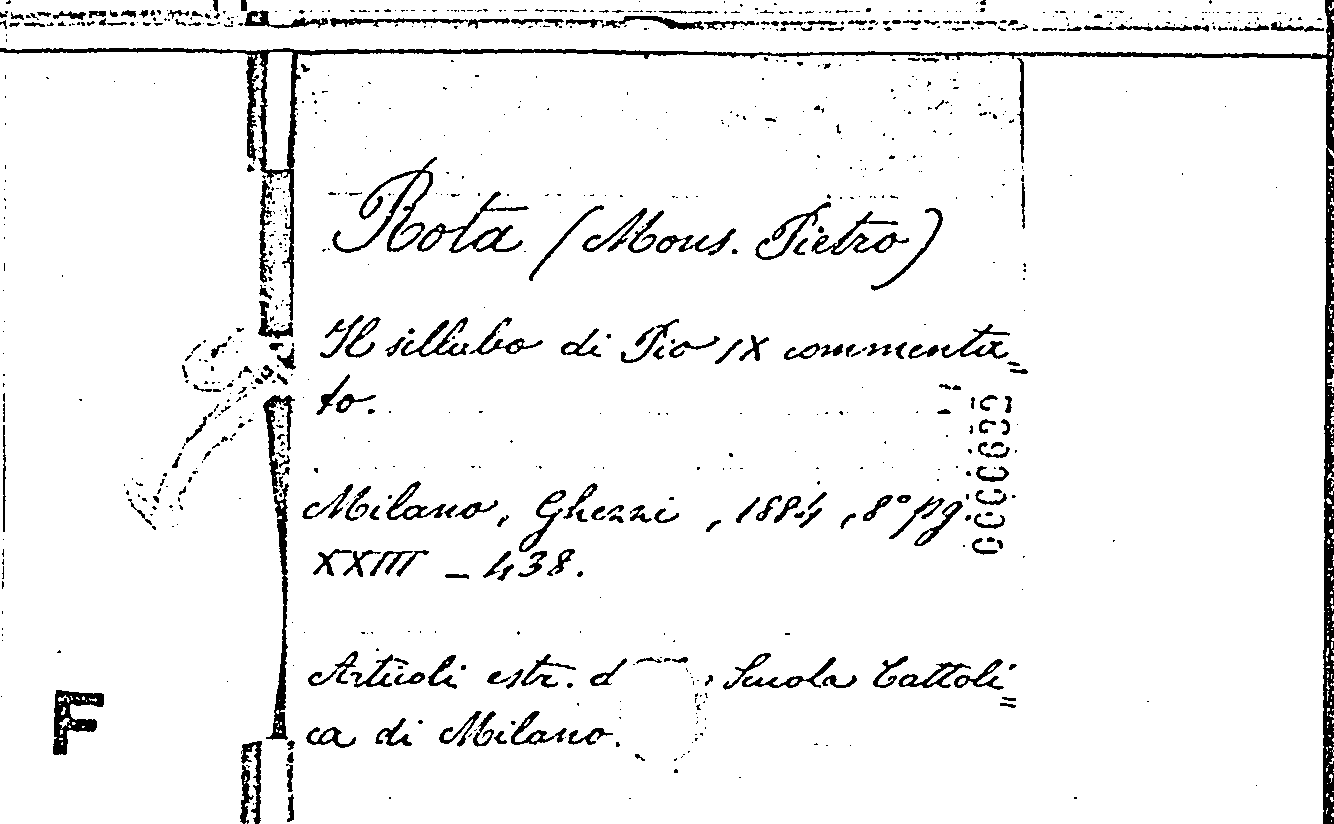 Rota (Mons. Pietro)
Il sillabo di Pio IX commenta=
to.
Milano, Ghezzi, 1884, 8° pg.
XXIII - 438.
Articoli estr. d Scuola Cattoli=
ca di Milano.
F